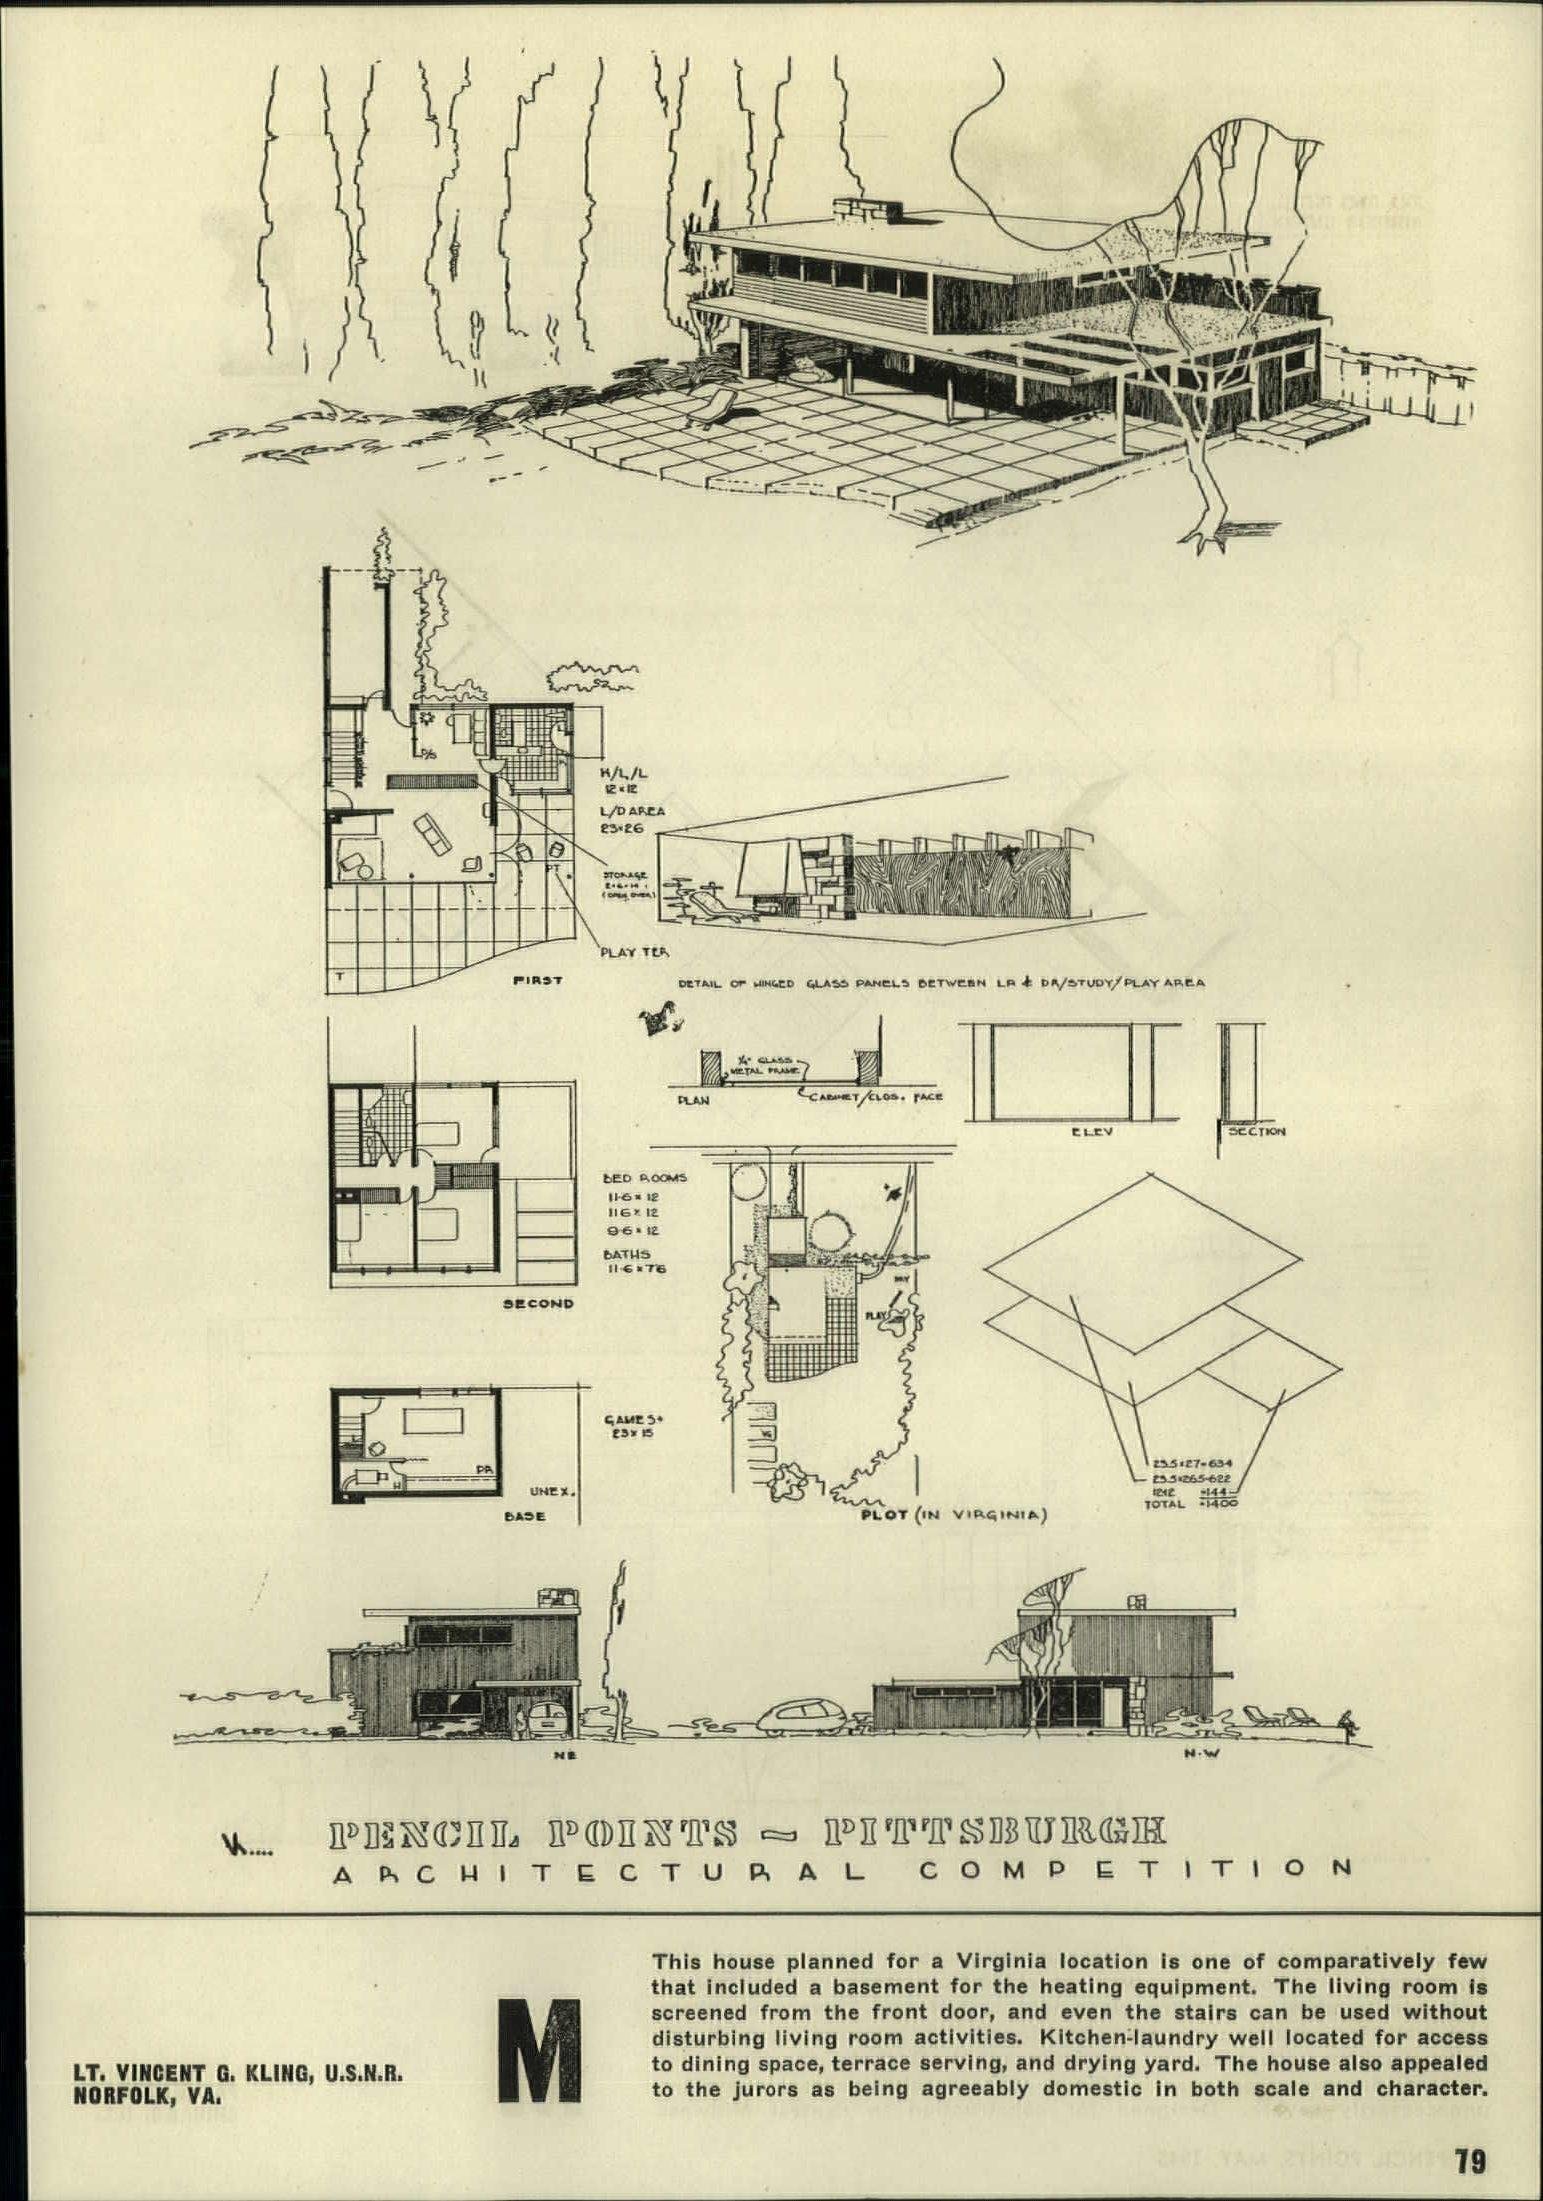 K/L/L
12×12
L/D AREA
23×26
STORAGE
(OPEN OVER)
PLAY TER
D/S
PT
T
FIRST
DETAIL OF HINGED GLASS PANELS BETWEEN LR & DR/STUDY/PLAY AREA
¼" GLASS
METAL FRAME
PLAN
CABINET/CLOS. FACE
ELEV
SECTION
BED ROOMS
11-6 × 12
11 6 × 12
9-6 × 12
BATHS
11-6 × 7 6
SECOND
DRY
PLAY
VG
GAMES+
23 × 15
PR
H
UNEX.
BASE
PLOT (IN VIRGINIA)
23.5×27=634
23.5×26.5=622
12×12 =144
TOTAL =1400
NE
N·W
VK....
PENCIL POINTS ~ PITTSBURGH
ARCHITECTURAL COMPETITION
LT. VINCENT G. KLING, U.S.N.R.
NORFOLK, VA.
M
This house planned for a Virginia location is one of comparatively few
that included a basement for the heating equipment. The living room is
screened from the front door, and even the stairs can be used without
disturbing living room activities. Kitchen-laundry well located for access
to dining space, terrace serving, and drying yard. The house also appealed
to the jurors as being agreeably domestic in both scale and character.
79